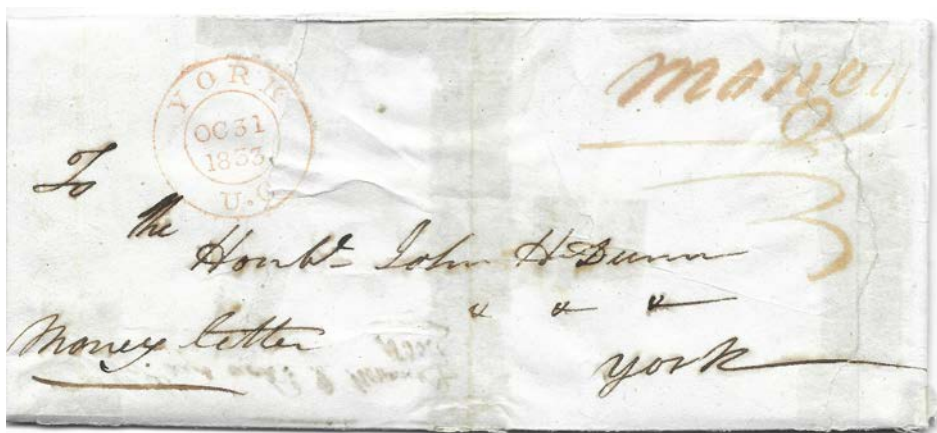 YORK
OC 31
1833
U.C
Money
3
To
the
Honble John H Dunn
" " "
Money letter
York